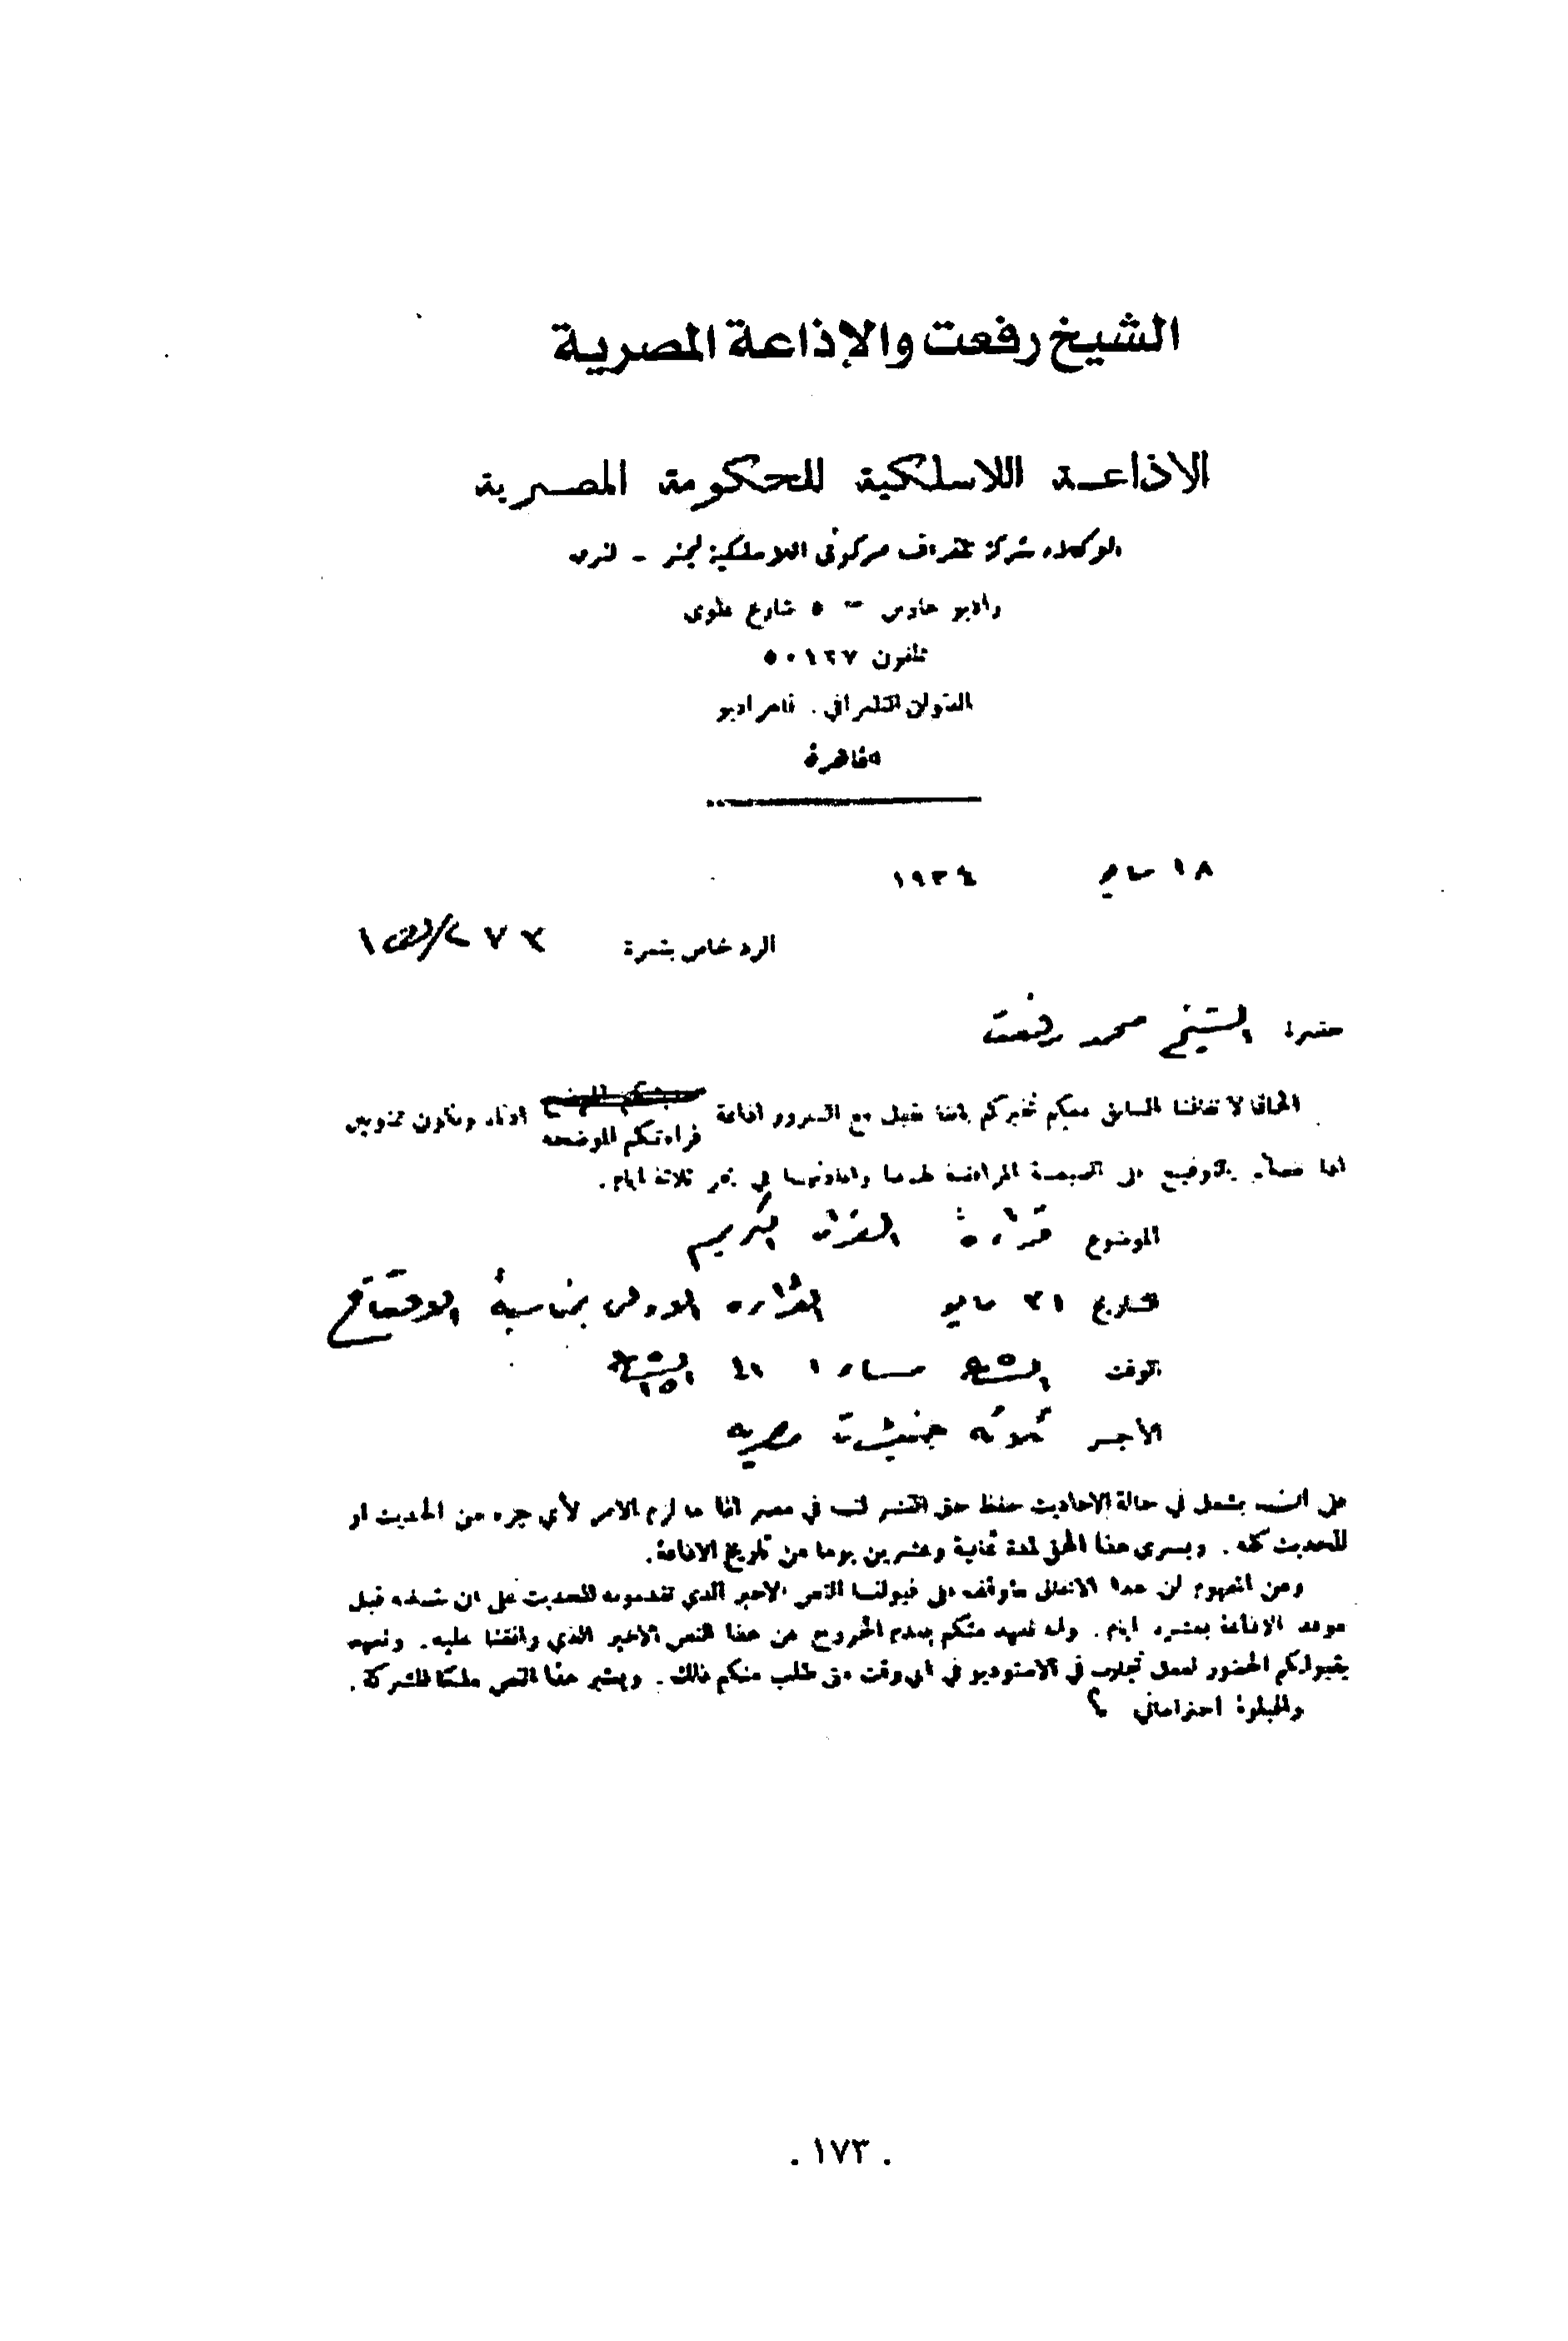 الشيخ رفعت والإذاعة المصرية
الاذاعة اللاسلكية للحكومة المصرية
الوكلاء شركة تلغراف مركونى اللاسلكية ليمتد - لندن
راديو هاوس - ٥ شارع علوى
تلفون ٥٠١٢٧
العنوان التلغرافي . قاهراديو
القاهرة
١٨ مايو ١٩٣٤
الرد خاص بنمرة
حضرة الشيخ محمد رفعت
الحاقا لاتفاقنا السابق معكم نخبركم باننا نقبل مع السرور اذاعة قراءتكم الموضحة ادناه ونكون ممنونين
اذا تفضلتم بالتوقيع على النسخة المرافقة لهذا واعادتها في بحر ثلاثة ايام .
الموضوع قراءة القرآن الكريم
التاريخ ٣١ مايو القراءة الاولى بمناسبة الافتتاح
الوقت الساعة مساء الى الساعة
الأجر ثلاثة جنيهات مصرية
على انه يشمل في حالة الاحاديث حفظ حق النشر لنا في مصر اذا ما لزم الامر لأي جزء من الحديث او
للحديث كله . ويسرى هذا الحق لمدة ثمانية وعشرين يوما من تاريخ الاذاعة .
ومن المفهوم ان هذا الاتفاق متوقف على قبولنا النص الاخير الذي تقدمونه للحديث على ان نتسلمه قبل
موعد الاذاعة بعشرة ايام . وانه تعهد منكم بعدم الخروج عن هذا النص الاخير الذي وافقنا عليه . وتعهد
بقبولكم الحضور لعمل تجارب في الاستوديو في اى وقت متى طلب منكم ذلك . ويعتبر هذا النص ملكا للشركة .
واقبلوا احتراماتي
. ١٧٣ .